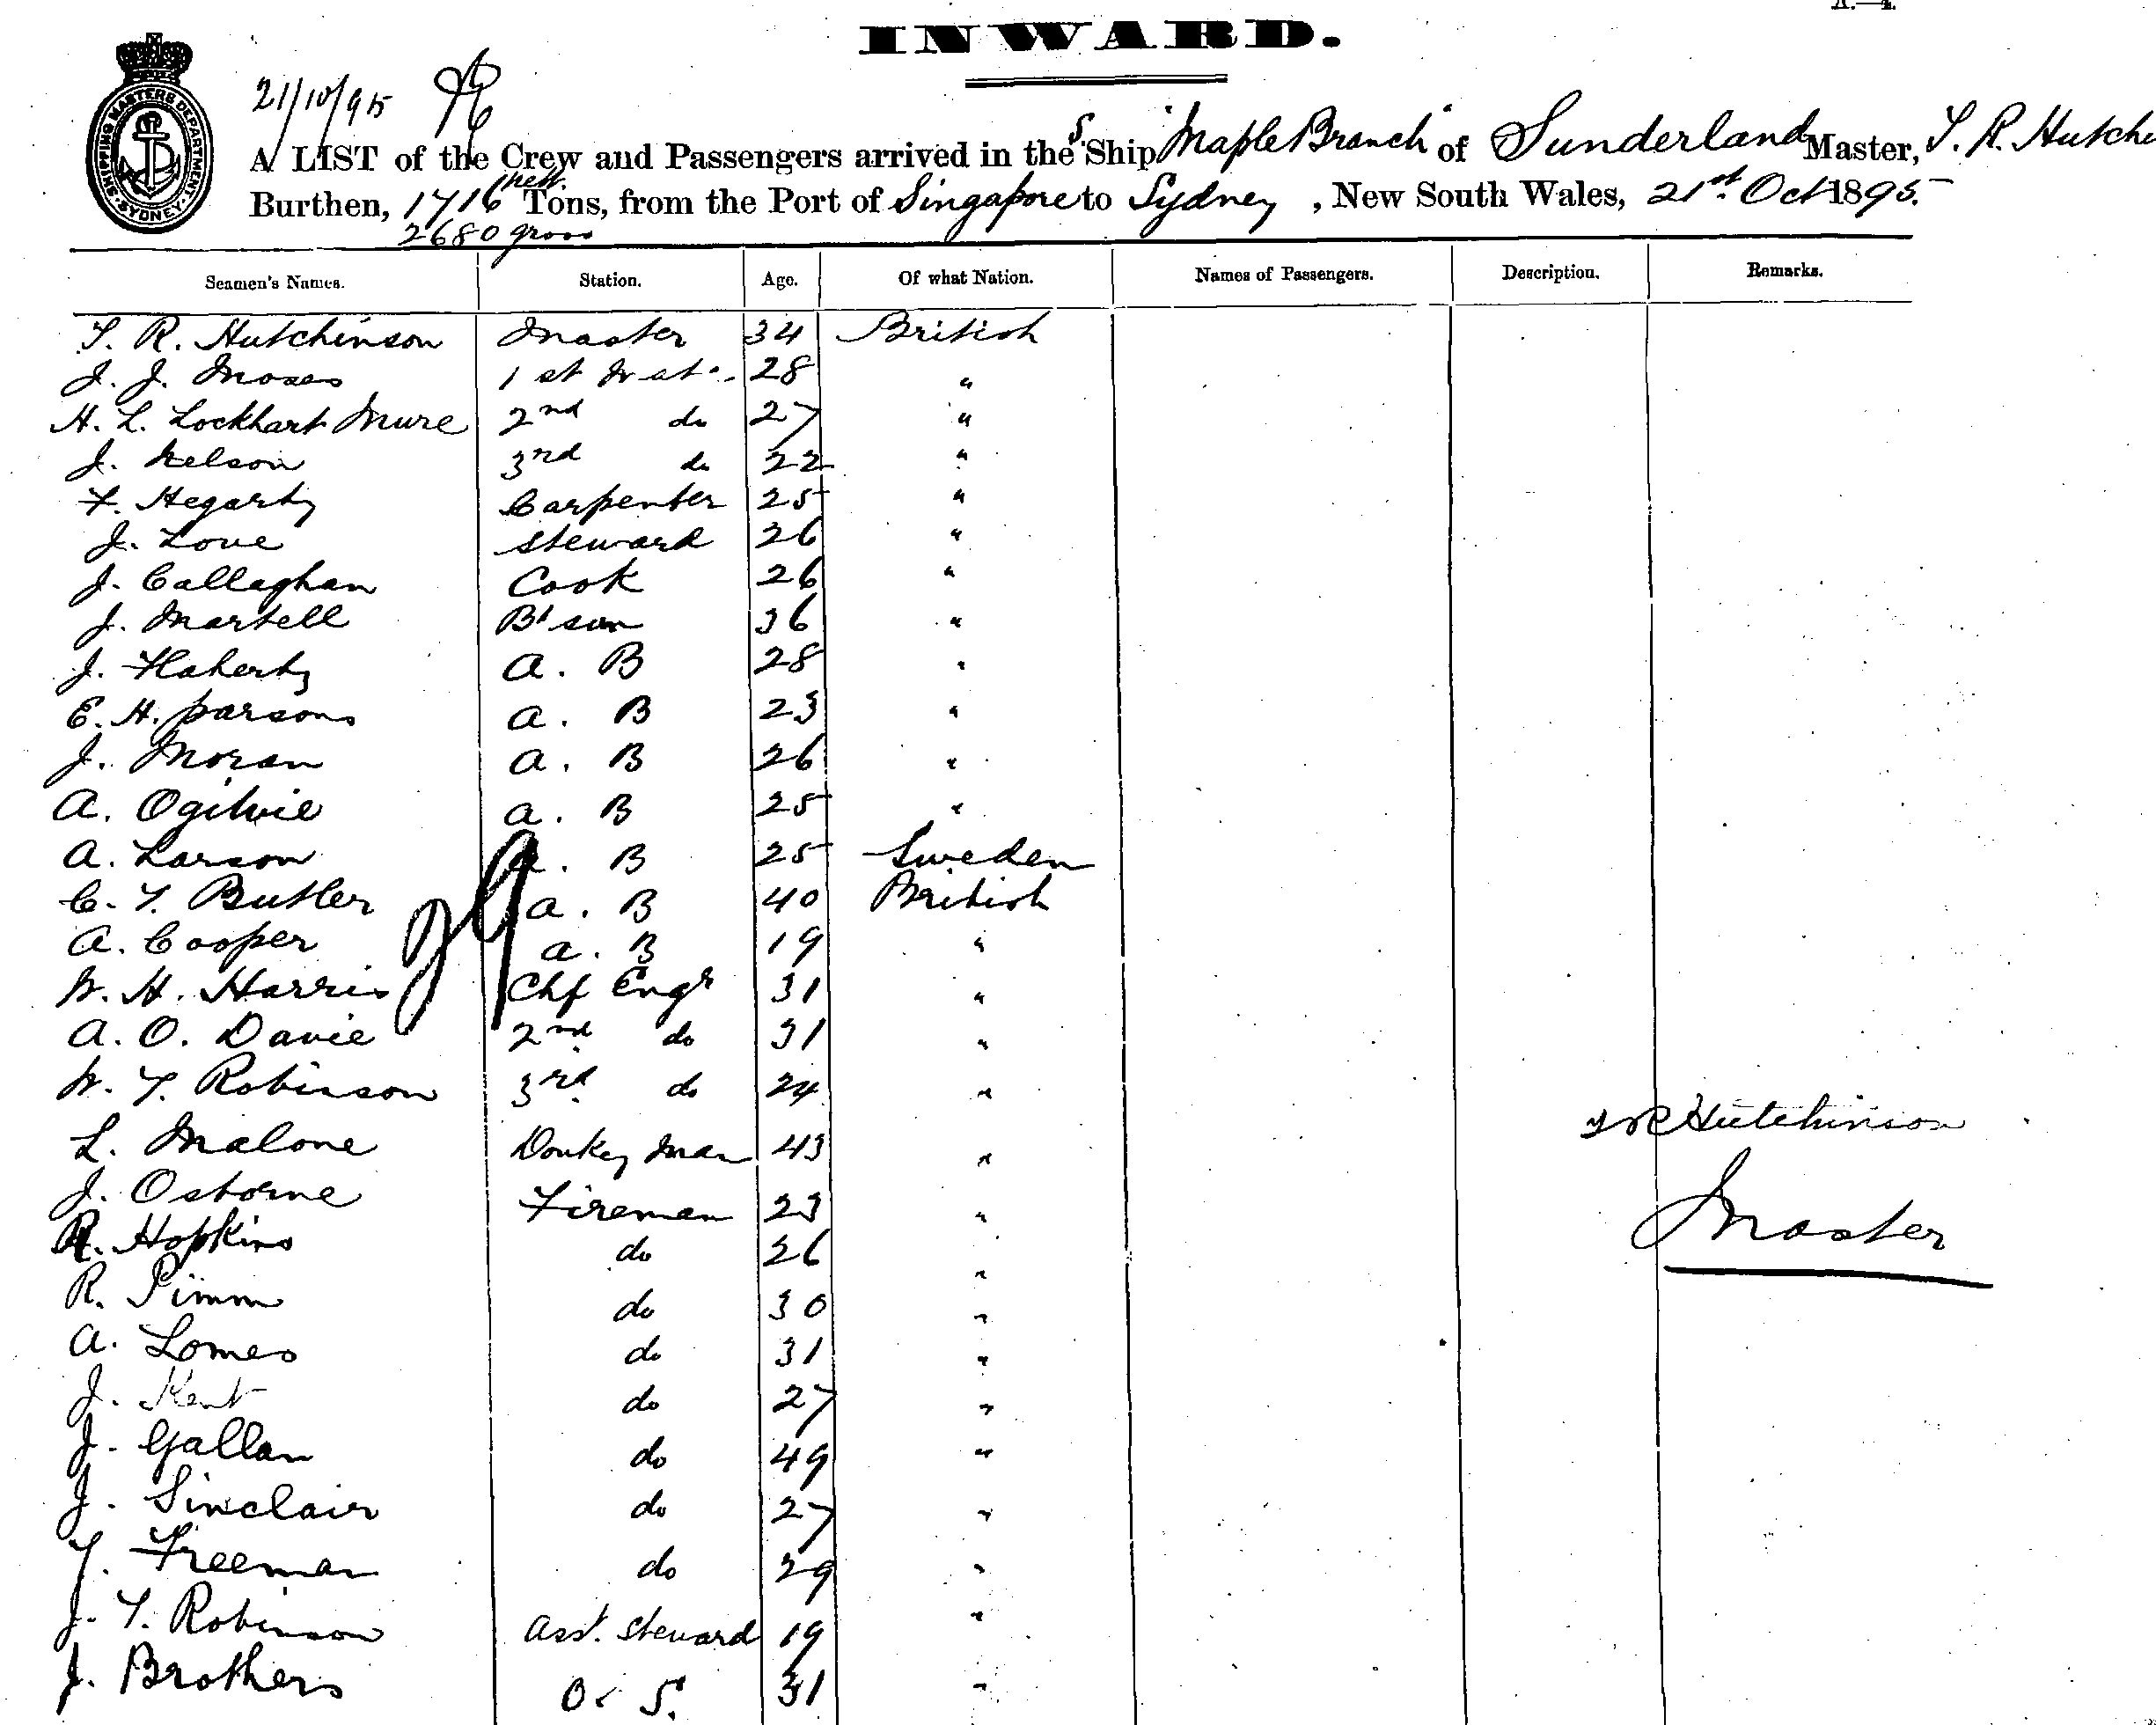 INWARD.
SHIPPING MASTERS DEPARTMENT
SYDNEY
21/10/95
A LIST of the Crew and Passengers arrived in the S. Ship "Maple Branch" of Sunderland Master, T. R. Hutchi
Burthen, 1716 nett. Tons, from the Port of Singapore to Sydney, New South Wales, 21st. Oct 1895.
2680 gross
Seamen's Names. Station. Age. Of what Nation. Names of Passengers. Description. Remarks.
T. R. Hutchinson Master 34 British
J. J. Moses 1st Mate 28 "
H. L. Lockhart Mure 2nd do 27 "
J. Nelson 3rd do 22 "
F. Hegarty Carpenter 25 "
J. Love Steward 26 "
J. Callaghan Cook 26 "
J. Martell Bt sun 36 "
J. Flaherty A. B 28 "
E. H. Parsons A. B 23 "
J. Moran A. B 26 "
A. Ogilvie A. B 25 "
A. Larson A. B 25 Sweden
C. T. Butler A. B 40 British
A. Cooper A. B 19 "
W. H. Harris Chf Engr 31 "
A. O. Davie 2nd do 31 "
W. T. Robinson 3rd. do 24 "
T R Hutchinson
L. Malone Donkey Man 43 "
J. Osborne Fireman 23 "
Master
R. Hopkins do 26 "
R. Pimm do 30 "
A. Lomes do 31 "
J. Kent do 27 "
J. Gallan do 49 "
J. Sinclair do 27 "
T. Freeman do 29 "
J. T. Robinson Asst. Steward 19 "
J. Brothers O. S. 31 "
29